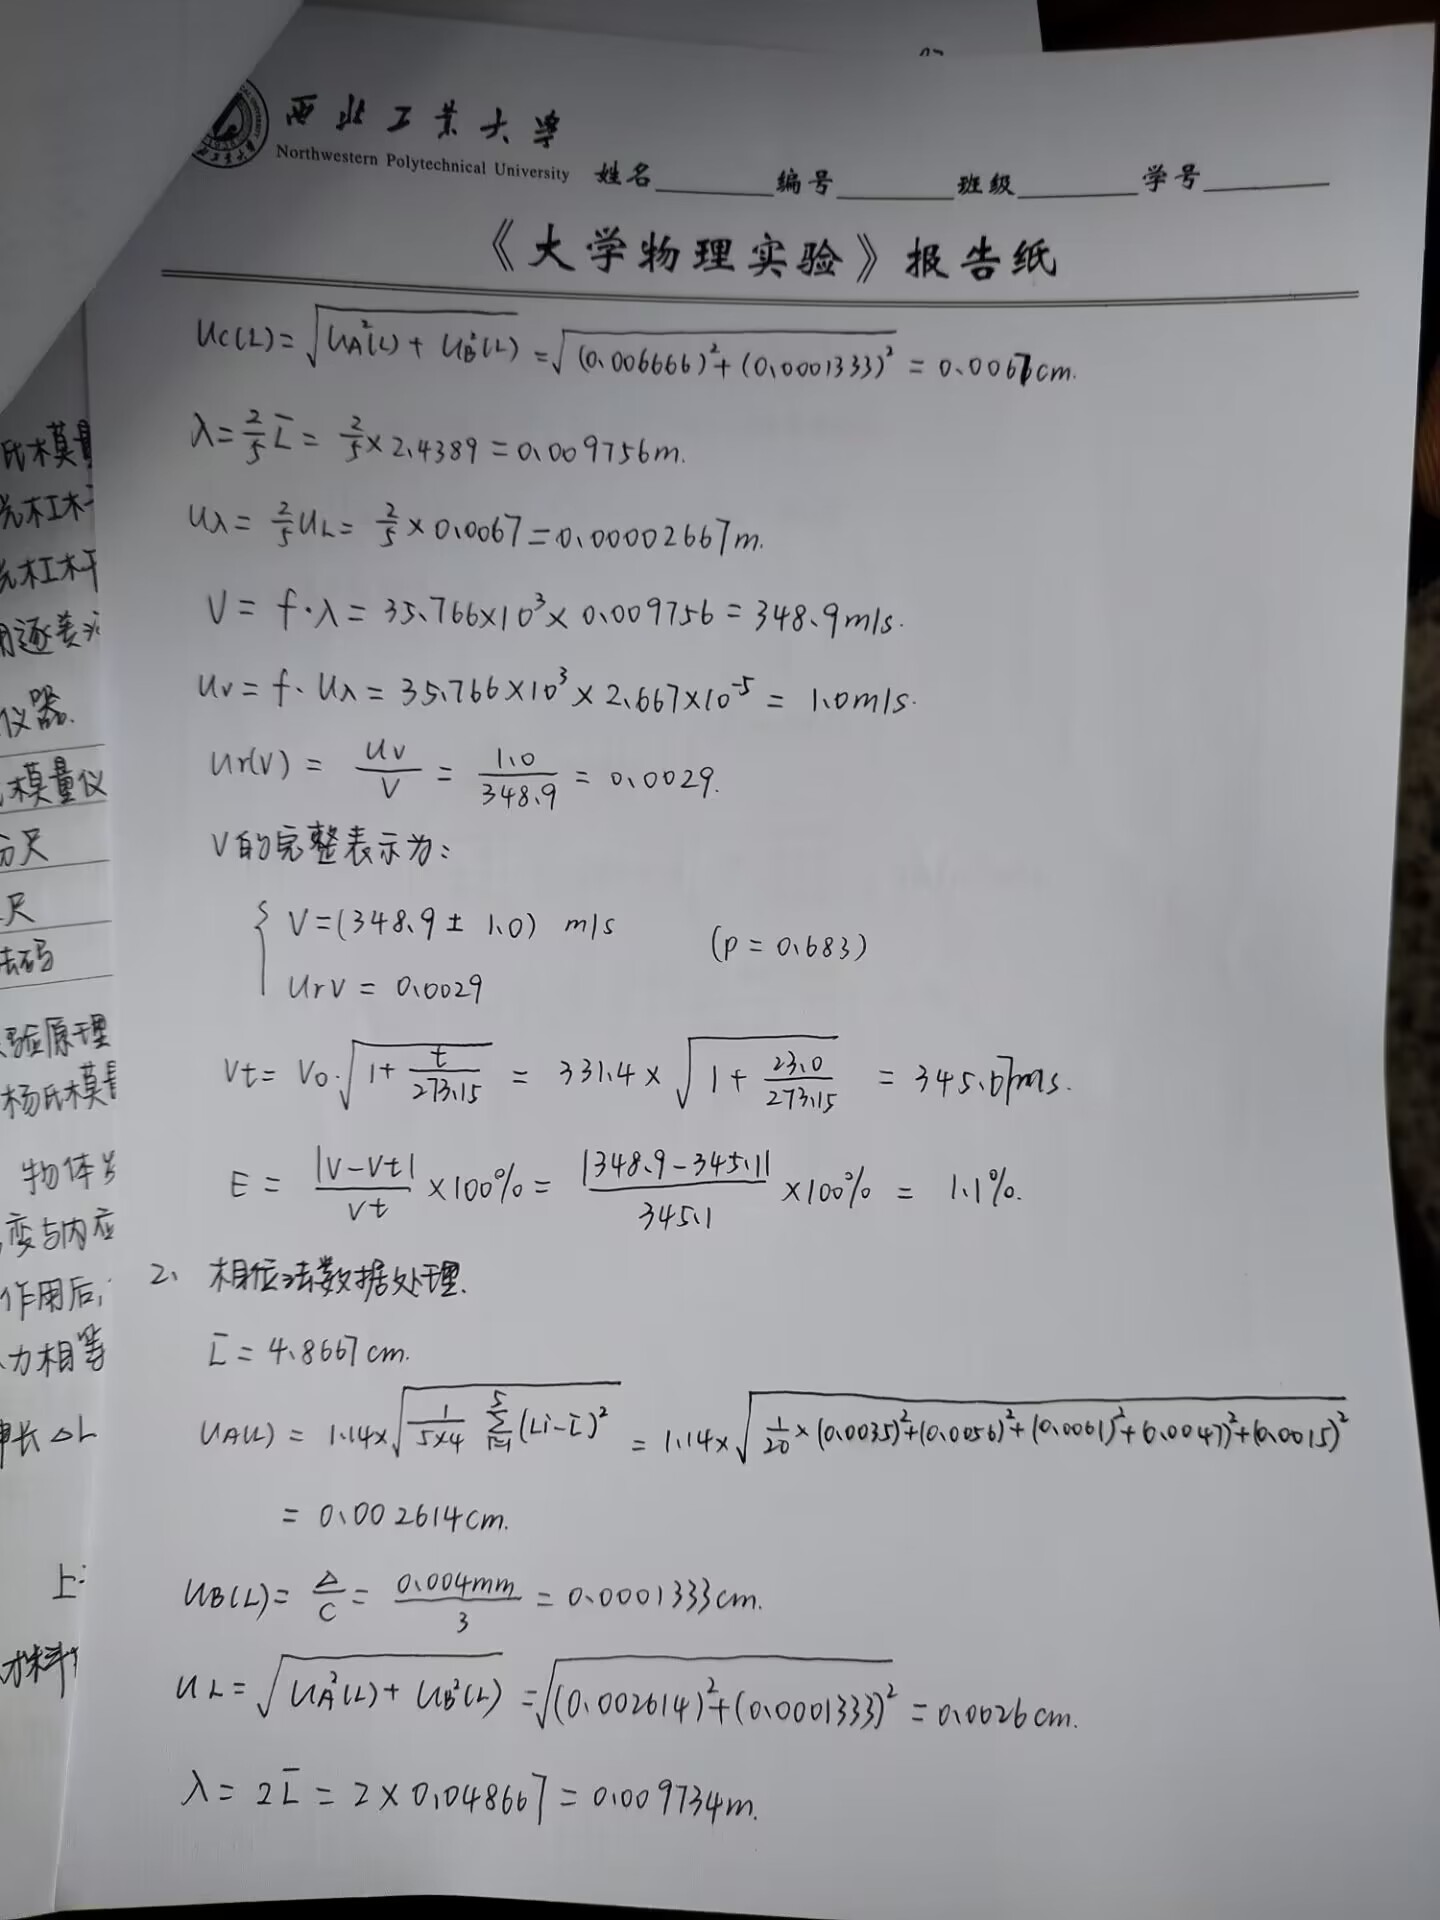 西北工业大学
Northwestern Polytechnical University
姓名 编号 班级 学号
《大学物理实验》报告纸
Uc(L)=√(UA²(L)+UB²(L))=√((0.006666)²+(0.0001333)²)=0.0067cm.
λ=2/5 L̄=2/5×2.4389=0.009756m.
Uλ=2/5 UL=2/5×0.0067=0.00002667m.
V=f·λ=35.766×10³×0.009756=348.9m/s.
Uv=f·Uλ=35.766×10³×2.667×10⁻⁵=1.0m/s.
Ur(V)=Uv/V=1.0/348.9=0.0029.
V的完整表示为:
{ V=(348.9±1.0) m/s (P=0.683)
UrV=0.0029
Vt=V0·√(1+t/273.15)=331.4×√(1+23.0/273.15)=345.m/s.
E=|V-Vt|/Vt×100%=|348.9-345.1|/345.1×100%=1.1%.
2、相位法数据处理.
L̄=4.8667cm.
UA(L)=1.14×√(1/(5×4) Σ(i=1→5)(Li-L̄)²)=1.14×√(1/20×(0.0035)²+(0.0056)²+(0.0061)²+(0.0047)²+(0.0015)²
=0.002614cm.
UB(L)=Δ/C=0.004mm/3=0.0001333cm.
UL=√(UA²(L)+UB²(L))=√((0.002614)²+(0.0001333)²)=0.0026cm.
λ=2L̄=2×0.048667=0.009734m.
氏模量
光杠杆
光杠杆
用逐差法
仪器.
模量仪
分尺
尺
砝码
验原理
杨氏模量
物体
变与内应
作用后,
力相等
伸长ΔL
上
材料